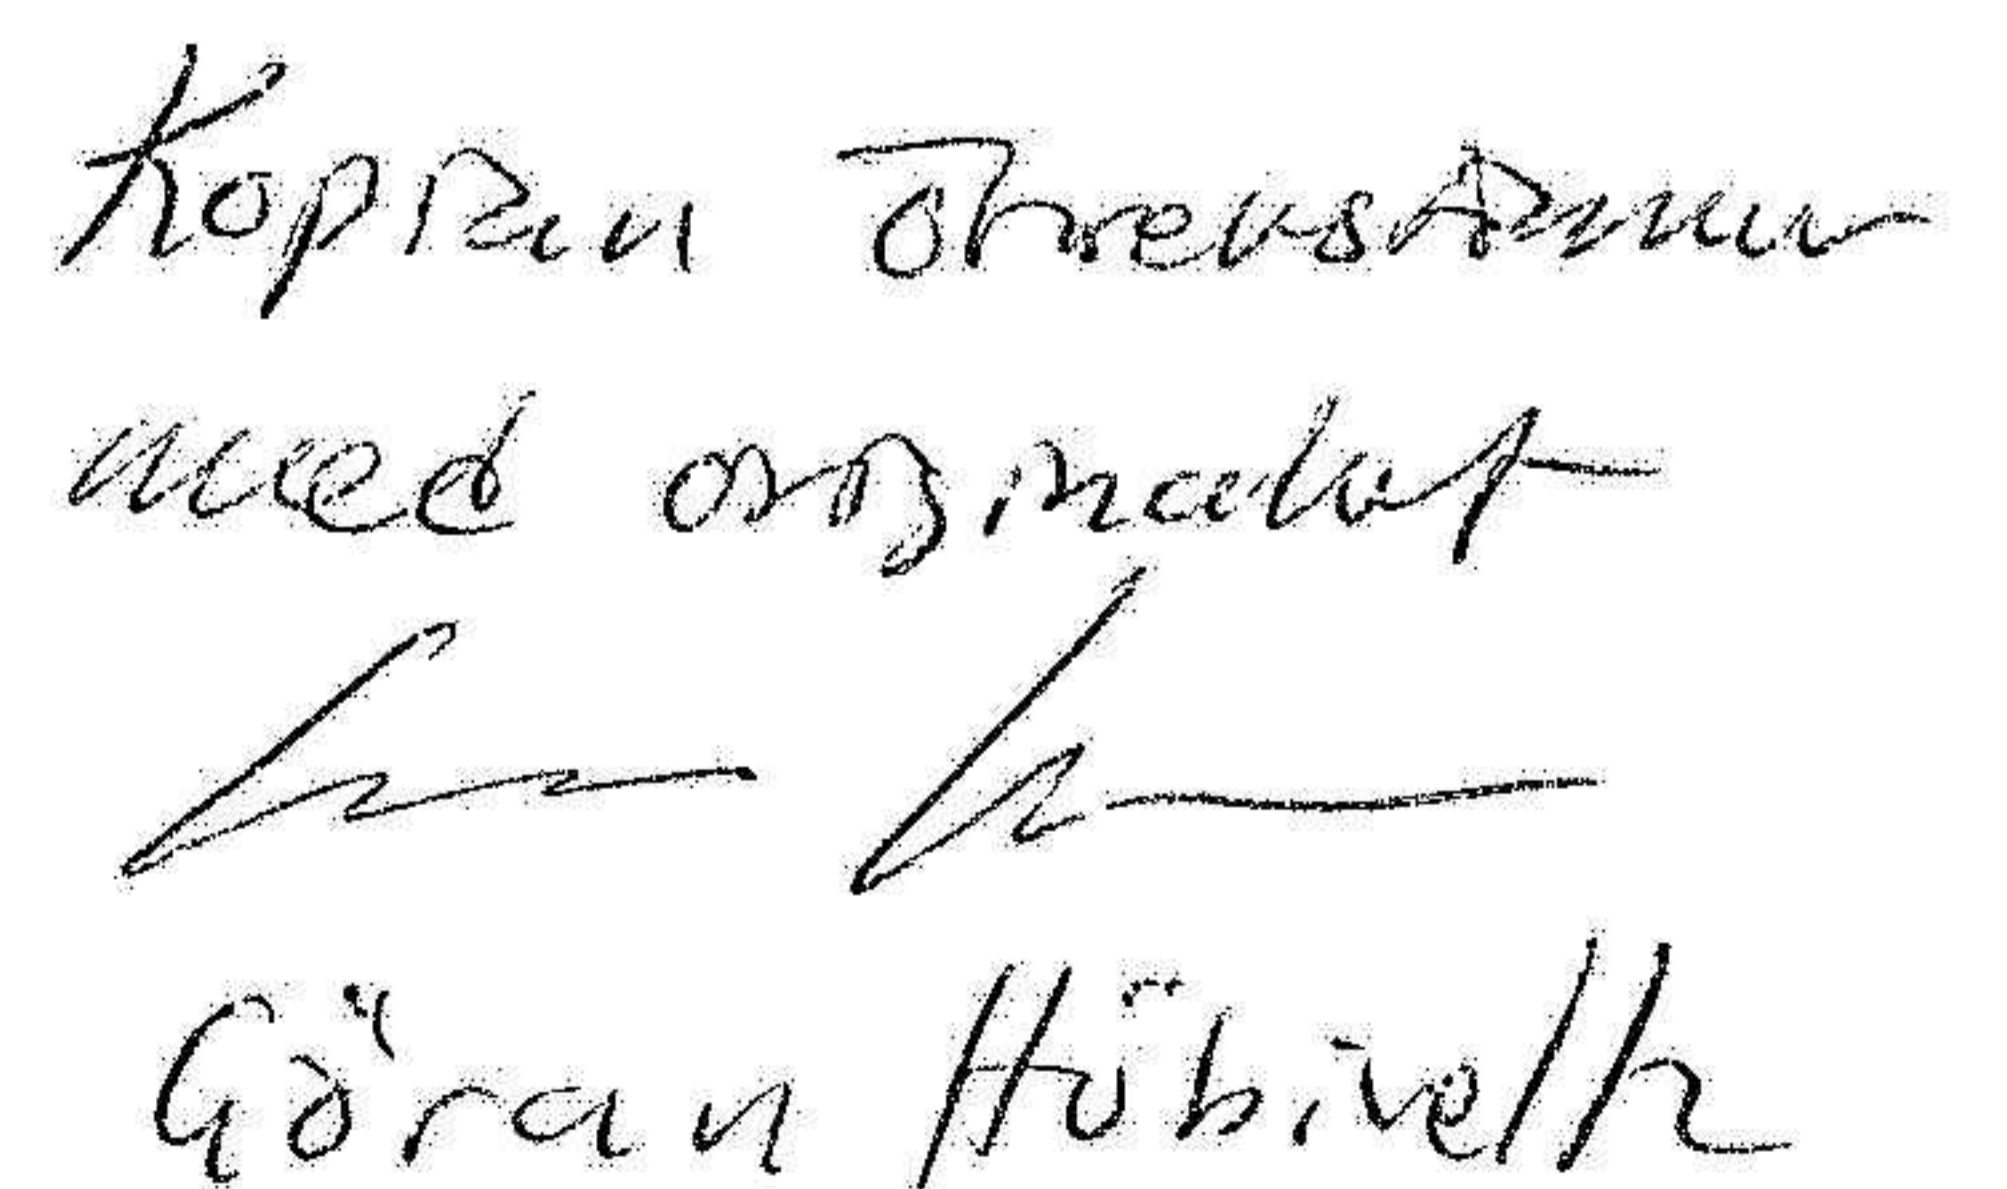 Kopian överensstämmer
med originalet
Göran